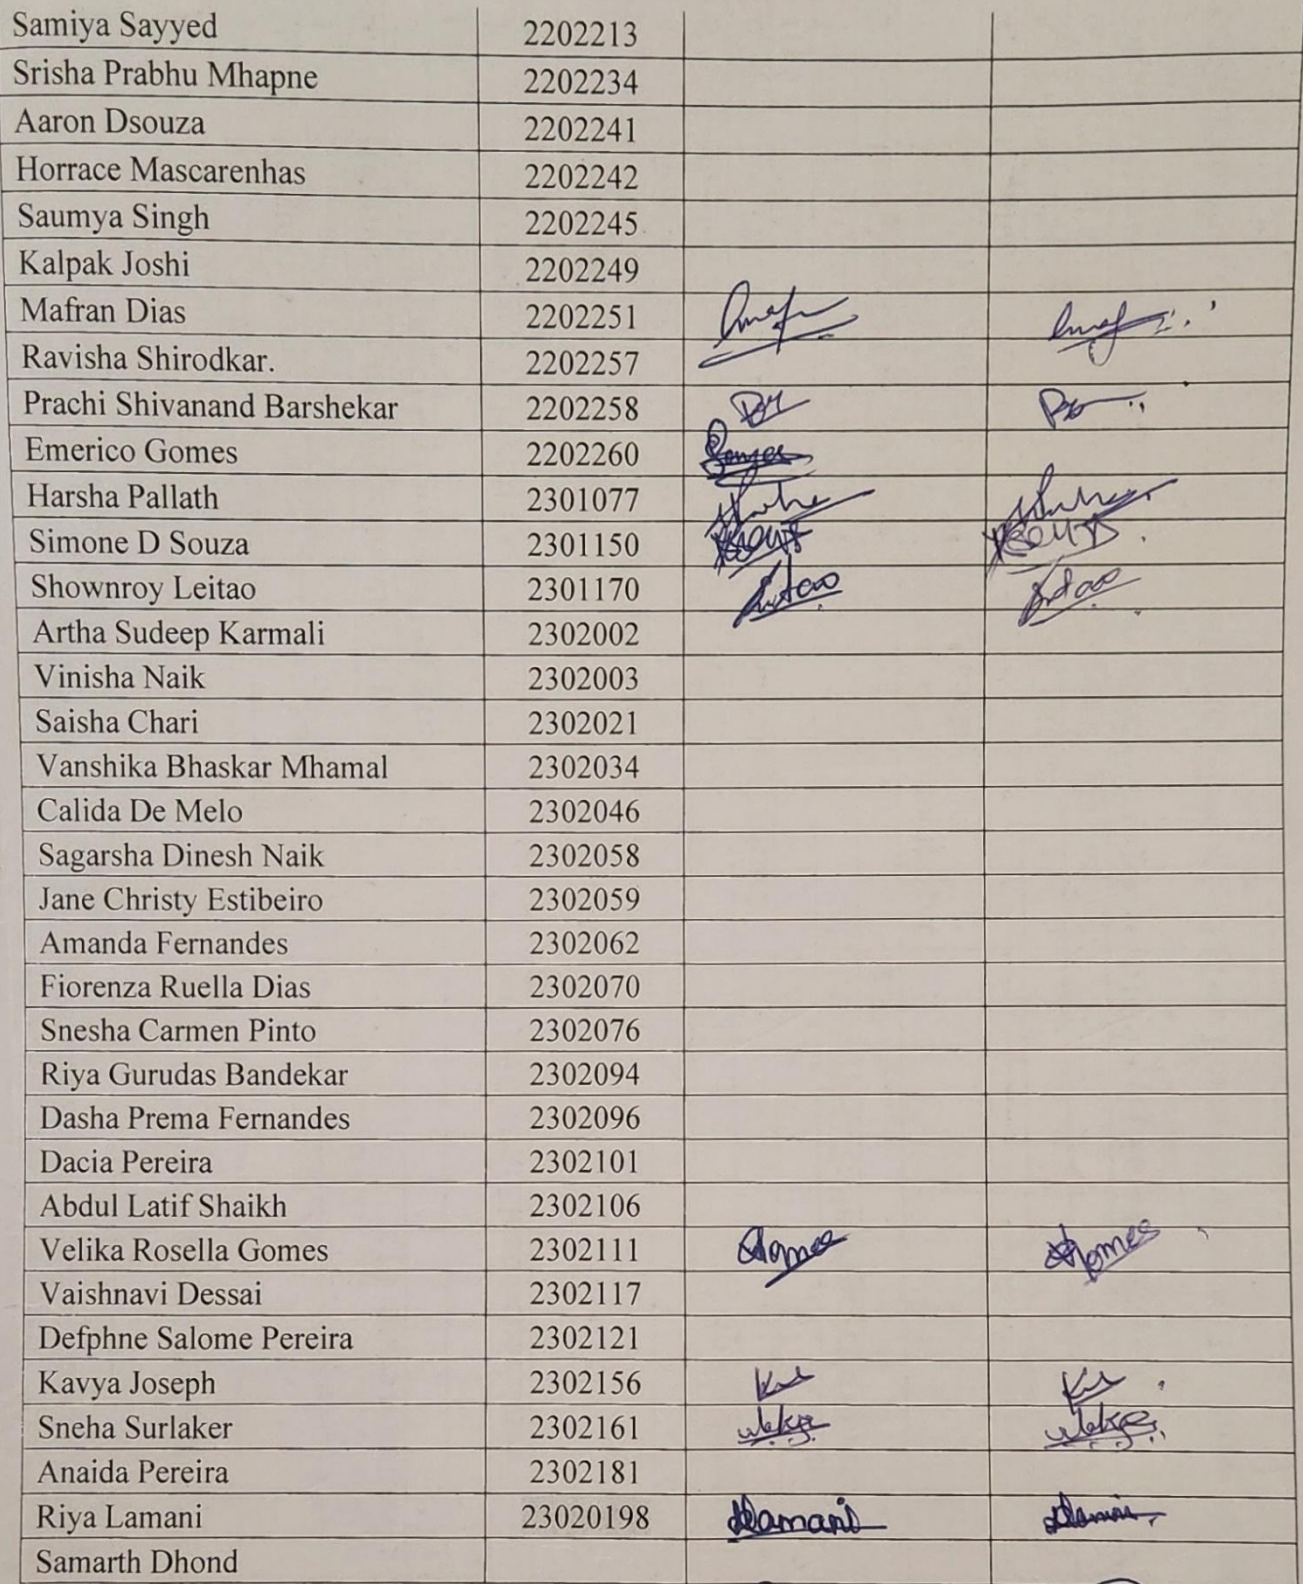 Samiya Sayyed 2202213
Srisha Prabhu Mhapne 2202234
Aaron Dsouza 2202241
Horrace Mascarenhas 2202242
Saumya Singh 2202245
Kalpak Joshi 2202249
Mafran Dias 2202251
Ravisha Shirodkar. 2202257
Prachi Shivanand Barshekar 2202258
Emerico Gomes 2202260 Gomes
Harsha Pallath 2301077
Simone D Souza 2301150
Shownroy Leitao 2301170
Artha Sudeep Karmali 2302002
Vinisha Naik 2302003
Saisha Chari 2302021
Vanshika Bhaskar Mhamal 2302034
Calida De Melo 2302046
Sagarsha Dinesh Naik 2302058
Jane Christy Estibeiro 2302059
Amanda Fernandes 2302062
Fiorenza Ruella Dias 2302070
Snesha Carmen Pinto 2302076
Riya Gurudas Bandekar 2302094
Dasha Prema Fernandes 2302096
Dacia Pereira 2302101
Abdul Latif Shaikh 2302106
Velika Rosella Gomes 2302111
Vaishnavi Dessai 2302117
Defphne Salome Pereira 2302121
Kavya Joseph 2302156
Sneha Surlaker 2302161
Anaida Pereira 2302181
Riya Lamani 23020198
Samarth Dhond